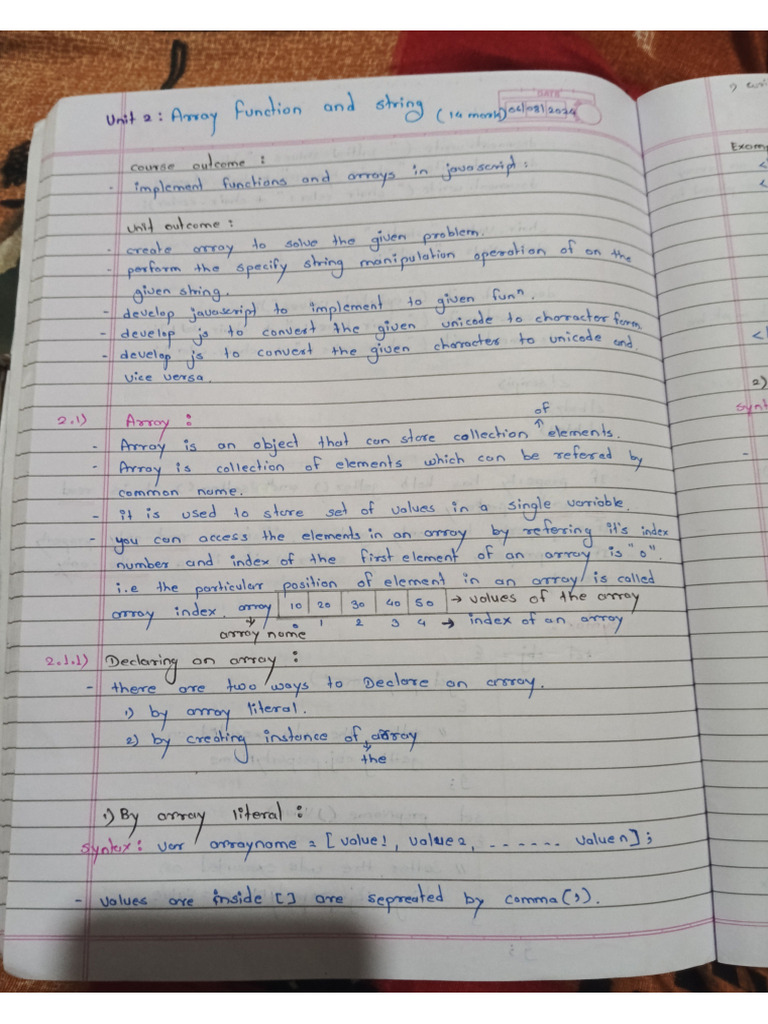 Unit 2 : Array function and string (14 mark)
DATE
06/08/2024
course outcome :
- implement functions and arrays in javascript :
unit outcome :
- create array to solve the given problem.
- perform the specify string manipulation operation of on the
given string.
- develop javascript to implement to given funⁿ.
- develop js to convert the given unicode to charactor form
- develop js to convert the given character to unicode and
vice versa.
2.1) Array :
of
- Array is an object that can store collection ↑ elements.
- Array is collection of elements which can be refered by
common name.
- it is used to store set of values in a single variable.
- you can access the elements in an array by refering it's index
number and index of the first element of an array is "0".
i.e the particular position of element in an array is called
array index. array 10 20 30 40 50 → values of the array
↓ 0 1 2 3 4 → index of an array
array name
2.1.1) Declaring an array :
- there are two ways to Declare an array.
1) by array literal.
2) by creating instance of array
the
1) By array literal :
syntax : var arrayname = [ value1, value2, ....... valuen ] ;
- values are inside [] are sepreated by comma (,).
Examp
2)
synt